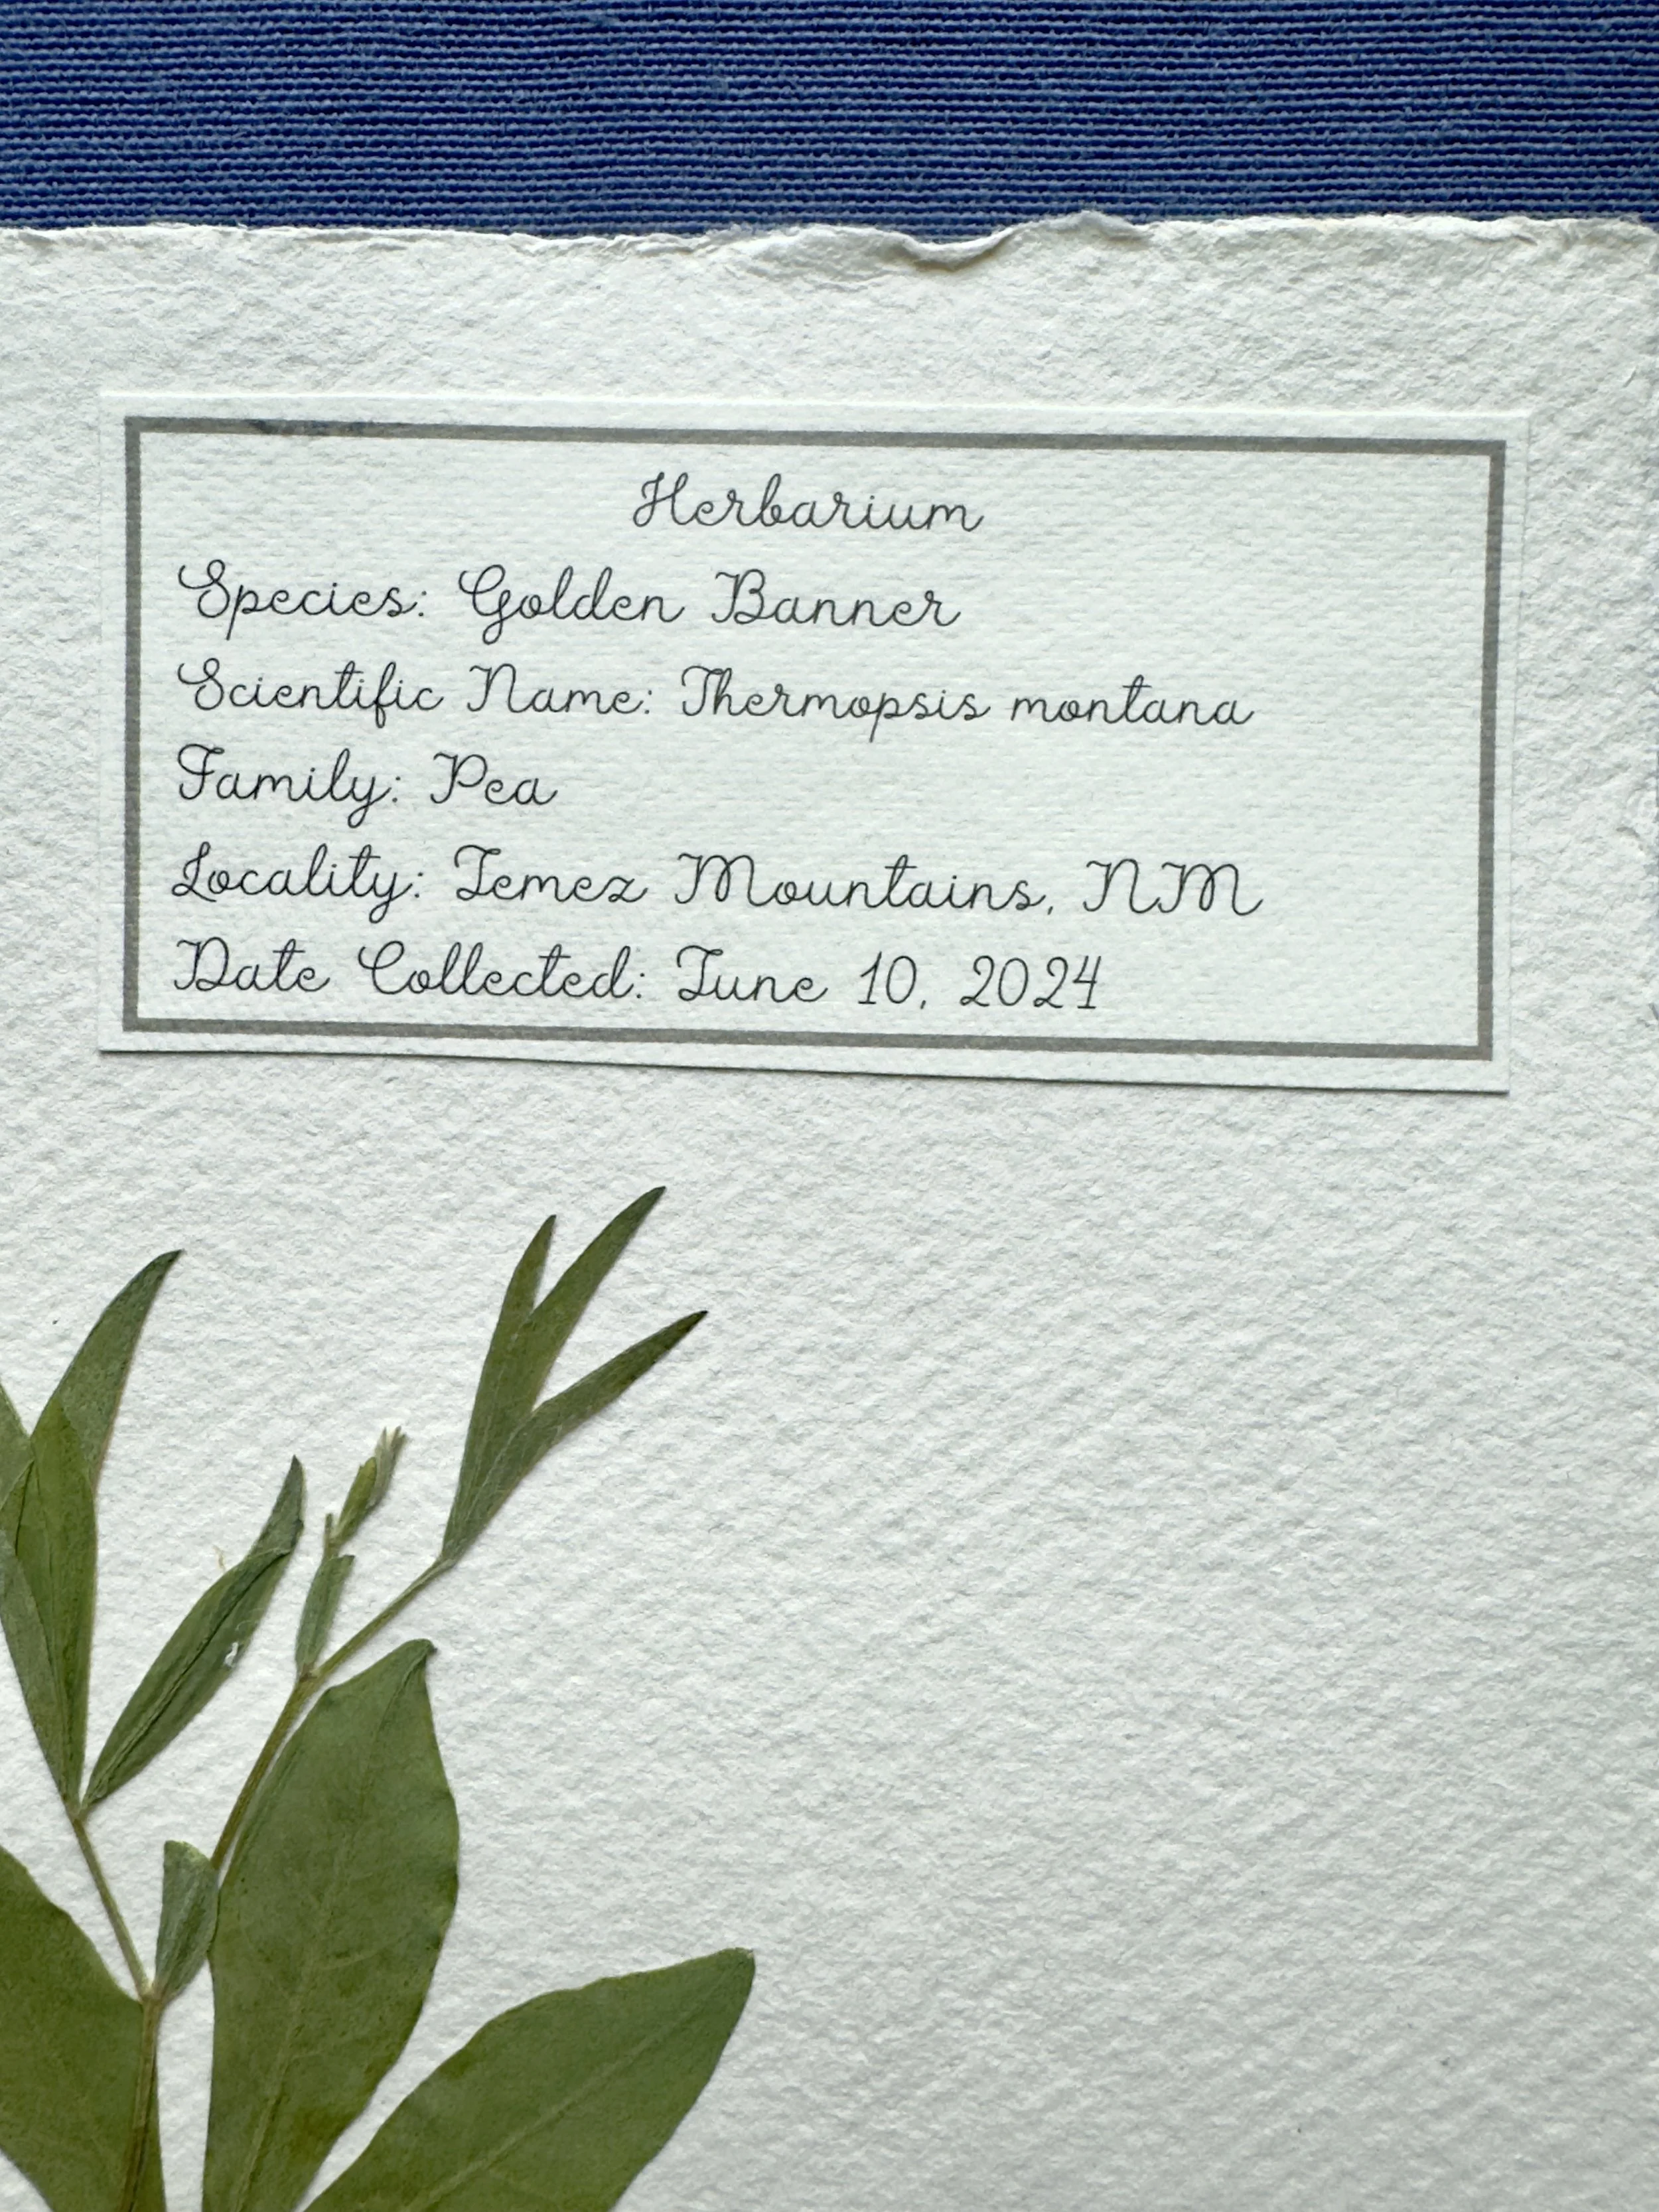 Herbarium
Species: Golden Banner
Scientific Name: Thermopsis montana
Family: Pea
Locality: Jemez Mountains, NM
Date Collected: June 10, 2024